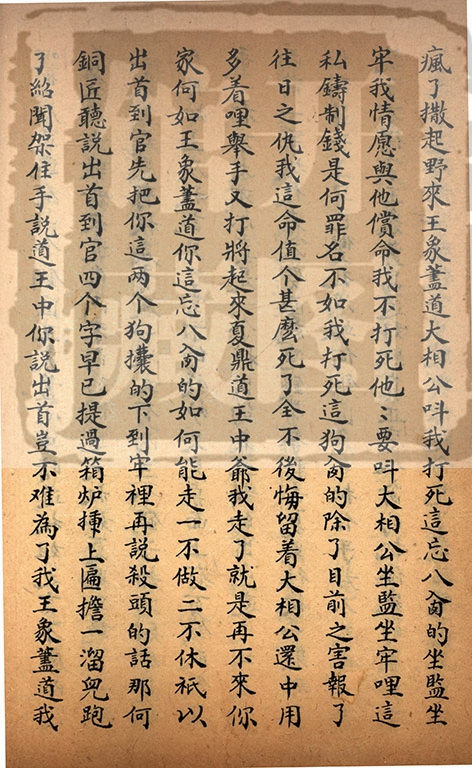 瘋了撒起野來王象藎道大相公呌我打死這忘八肏的坐監坐
牢我情愿與他償命我不打死他〻要呌大相公坐監坐牢哩這
私鑄制錢是何罪名不如我打死這狗肏的除了目前之害報了
往日之仇我這命值个甚麽死了全不後悔留着大相公還中用
多着哩舉手又打將起來夏鼎道王中爺我走了就是再不來你
家何如王象藎道你這忘八肏的如何能走一不做二不休祇以
出首到官先把你這两个狗攮的下到牢裡再說殺頭的話那何
銅匠聽説出首到官四个字早已提過箱炉揷上匾擔一溜兒跑
了紹聞架住手説道王中你説出首豈不难為了我王象藎道我